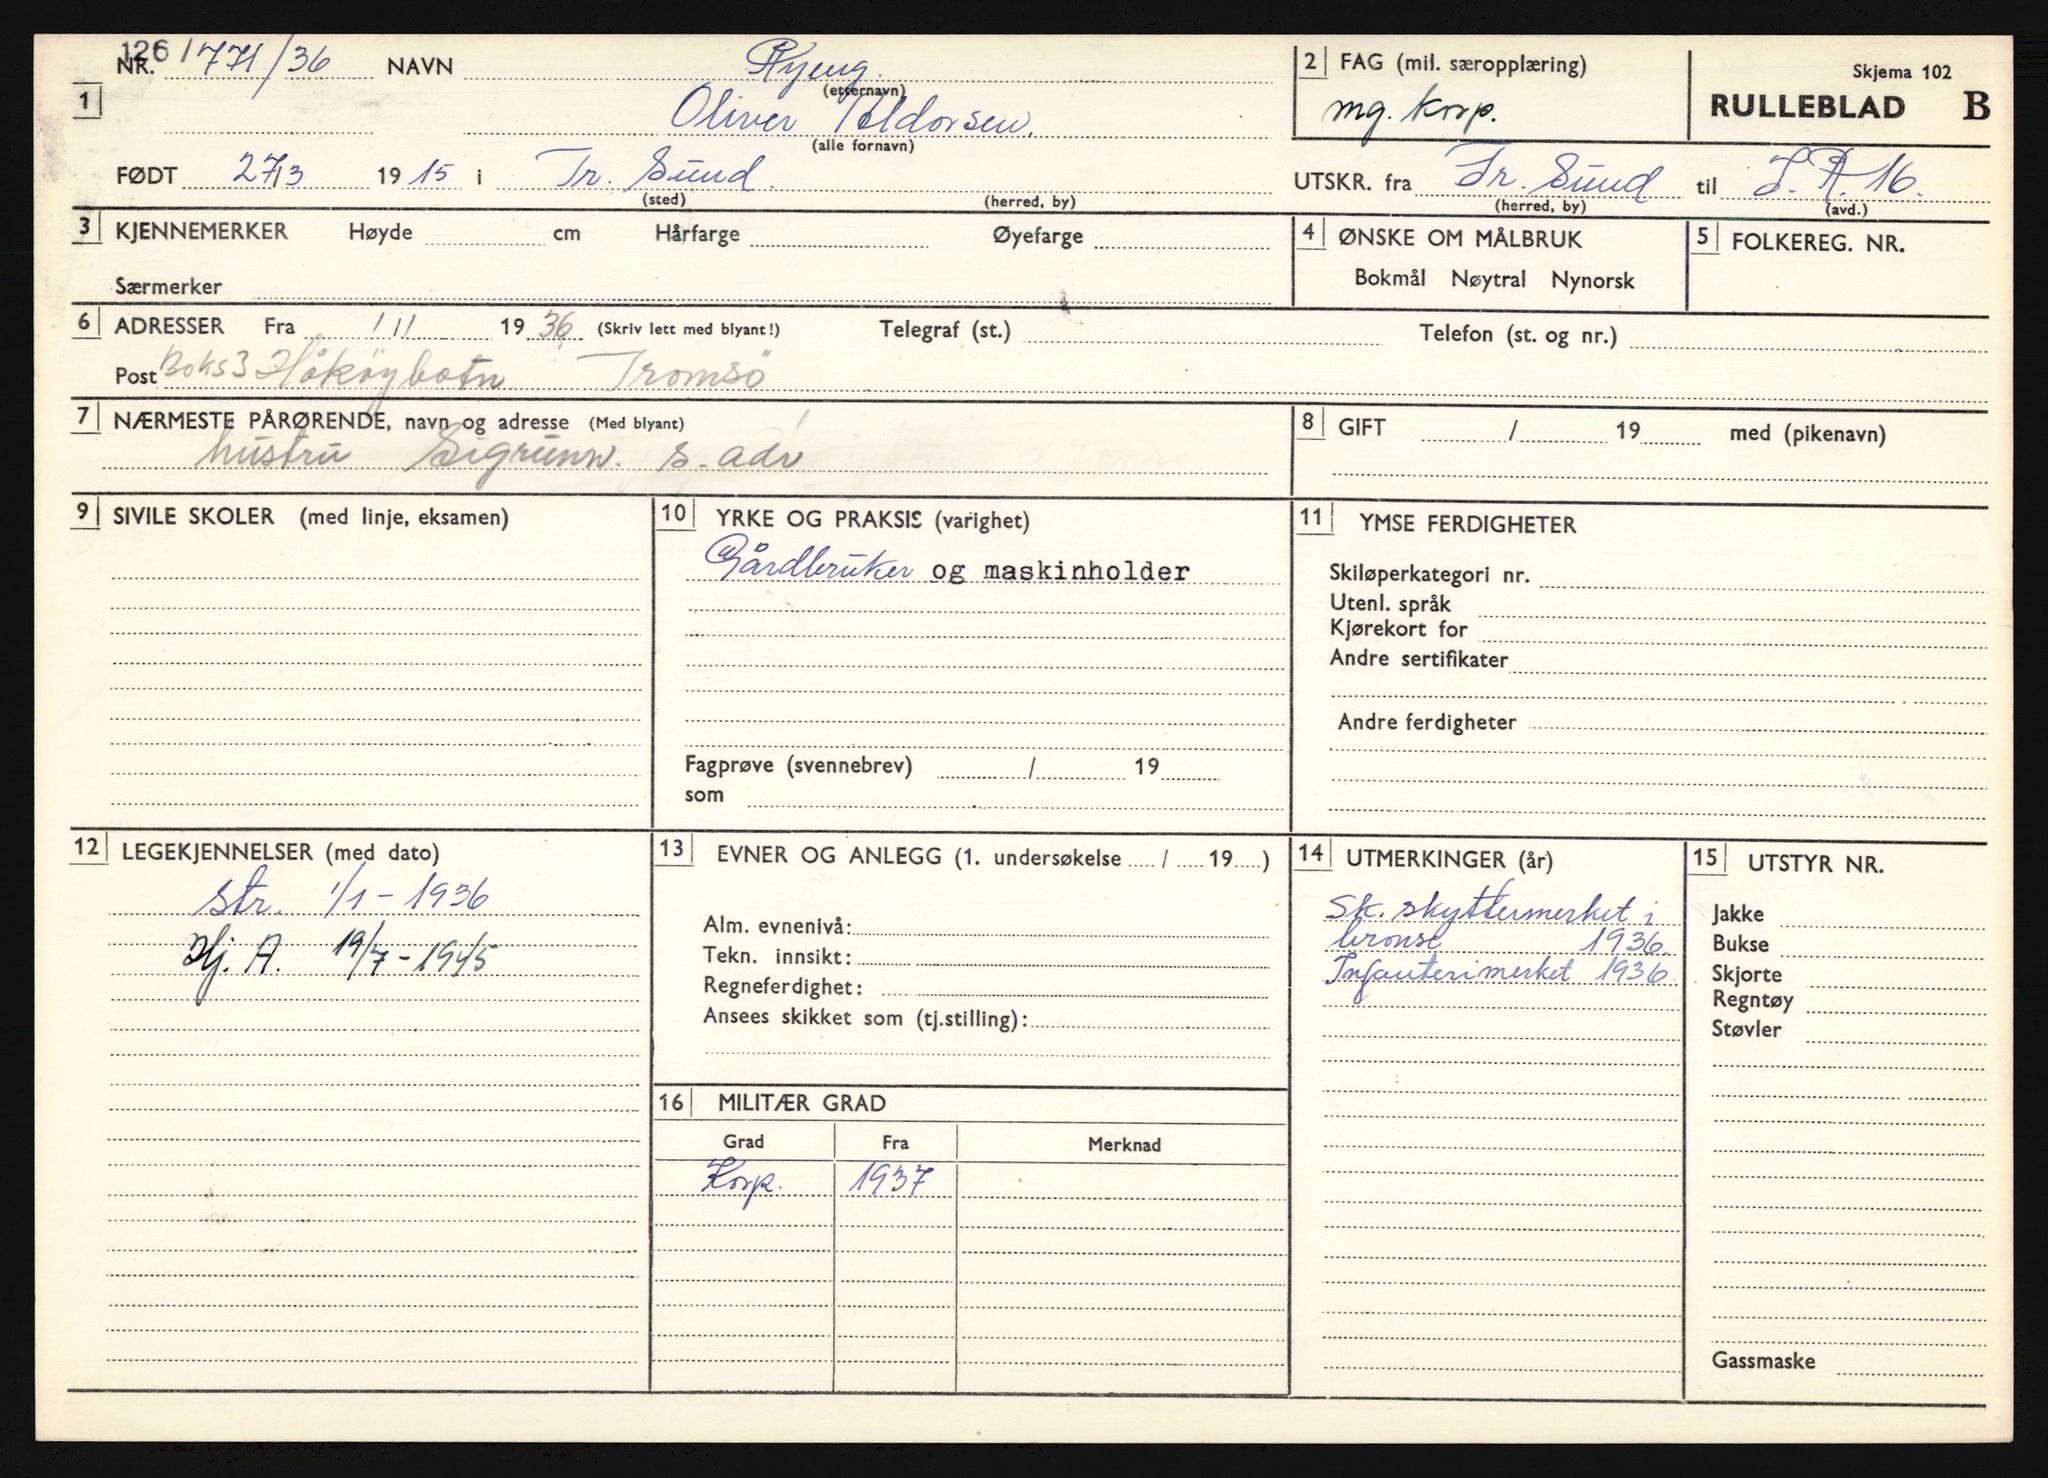 126/771/36 NR. NAVN Ryeng (etternavn)
1 Oliver Peldorsen. (alle fornavn)
2 FAG (mil. særopplæring)
mg. korp.
Skjema 102
RULLEBLAD B
FØDT 27/3 1915 i Tr. Sund. (sted) (herred, by)
UTSKR. fra Tr. Sund (herred, by) til I.R. 16. (avd.)
3 KJENNEMERKER Høyde cm Hårfarge Øyefarge
Særmerker
4 ØNSKE OM MÅLBRUK
Bokmål Nøytral Nynorsk
5 FOLKEREG. NR.
6 ADRESSER Fra 1/11 1936 (Skriv lett med blyant!) Telegraf (st.) Telefon (st. og nr.)
Post Boks 3 Håkøybotn Tromsö
7 NÆRMESTE PÅRØRENDE, navn og adresse (Med blyant)
hustru Sigrunn. s. adr
8 GIFT / 19 med (pikenavn)
9 SIVILE SKOLER (med linje, eksamen)
10 YRKE OG PRAKSIS (varighet)
Gårdbruker og maskinholder
Fagprøve (svennebrev) / 19
som
11 YMSE FERDIGHETER
Skiløperkategori nr.
Utenl. språk
Kjørekort for
Andre sertifikater
Andre ferdigheter
12 LEGEKJENNELSER (med dato)
Str. 1/1 - 1936
Hj. A. 19/7 - 1945
13 EVNER OG ANLEGG (1. undersøkelse / 19 )
Alm. evnenivå:
Tekn. innsikt:
Regneferdighet:
Ansees skikket som (tj.stilling):
14 UTMERKINGER (år)
Sk. skyttermerket i
bronse 1936.
Infanterimerket 1936.
15 UTSTYR NR.
Jakke
Bukse
Skjorte
Regntøy
Støvler
Gassmaske
16 MILITÆR GRAD
Grad Fra Merknad
Korp. 1937